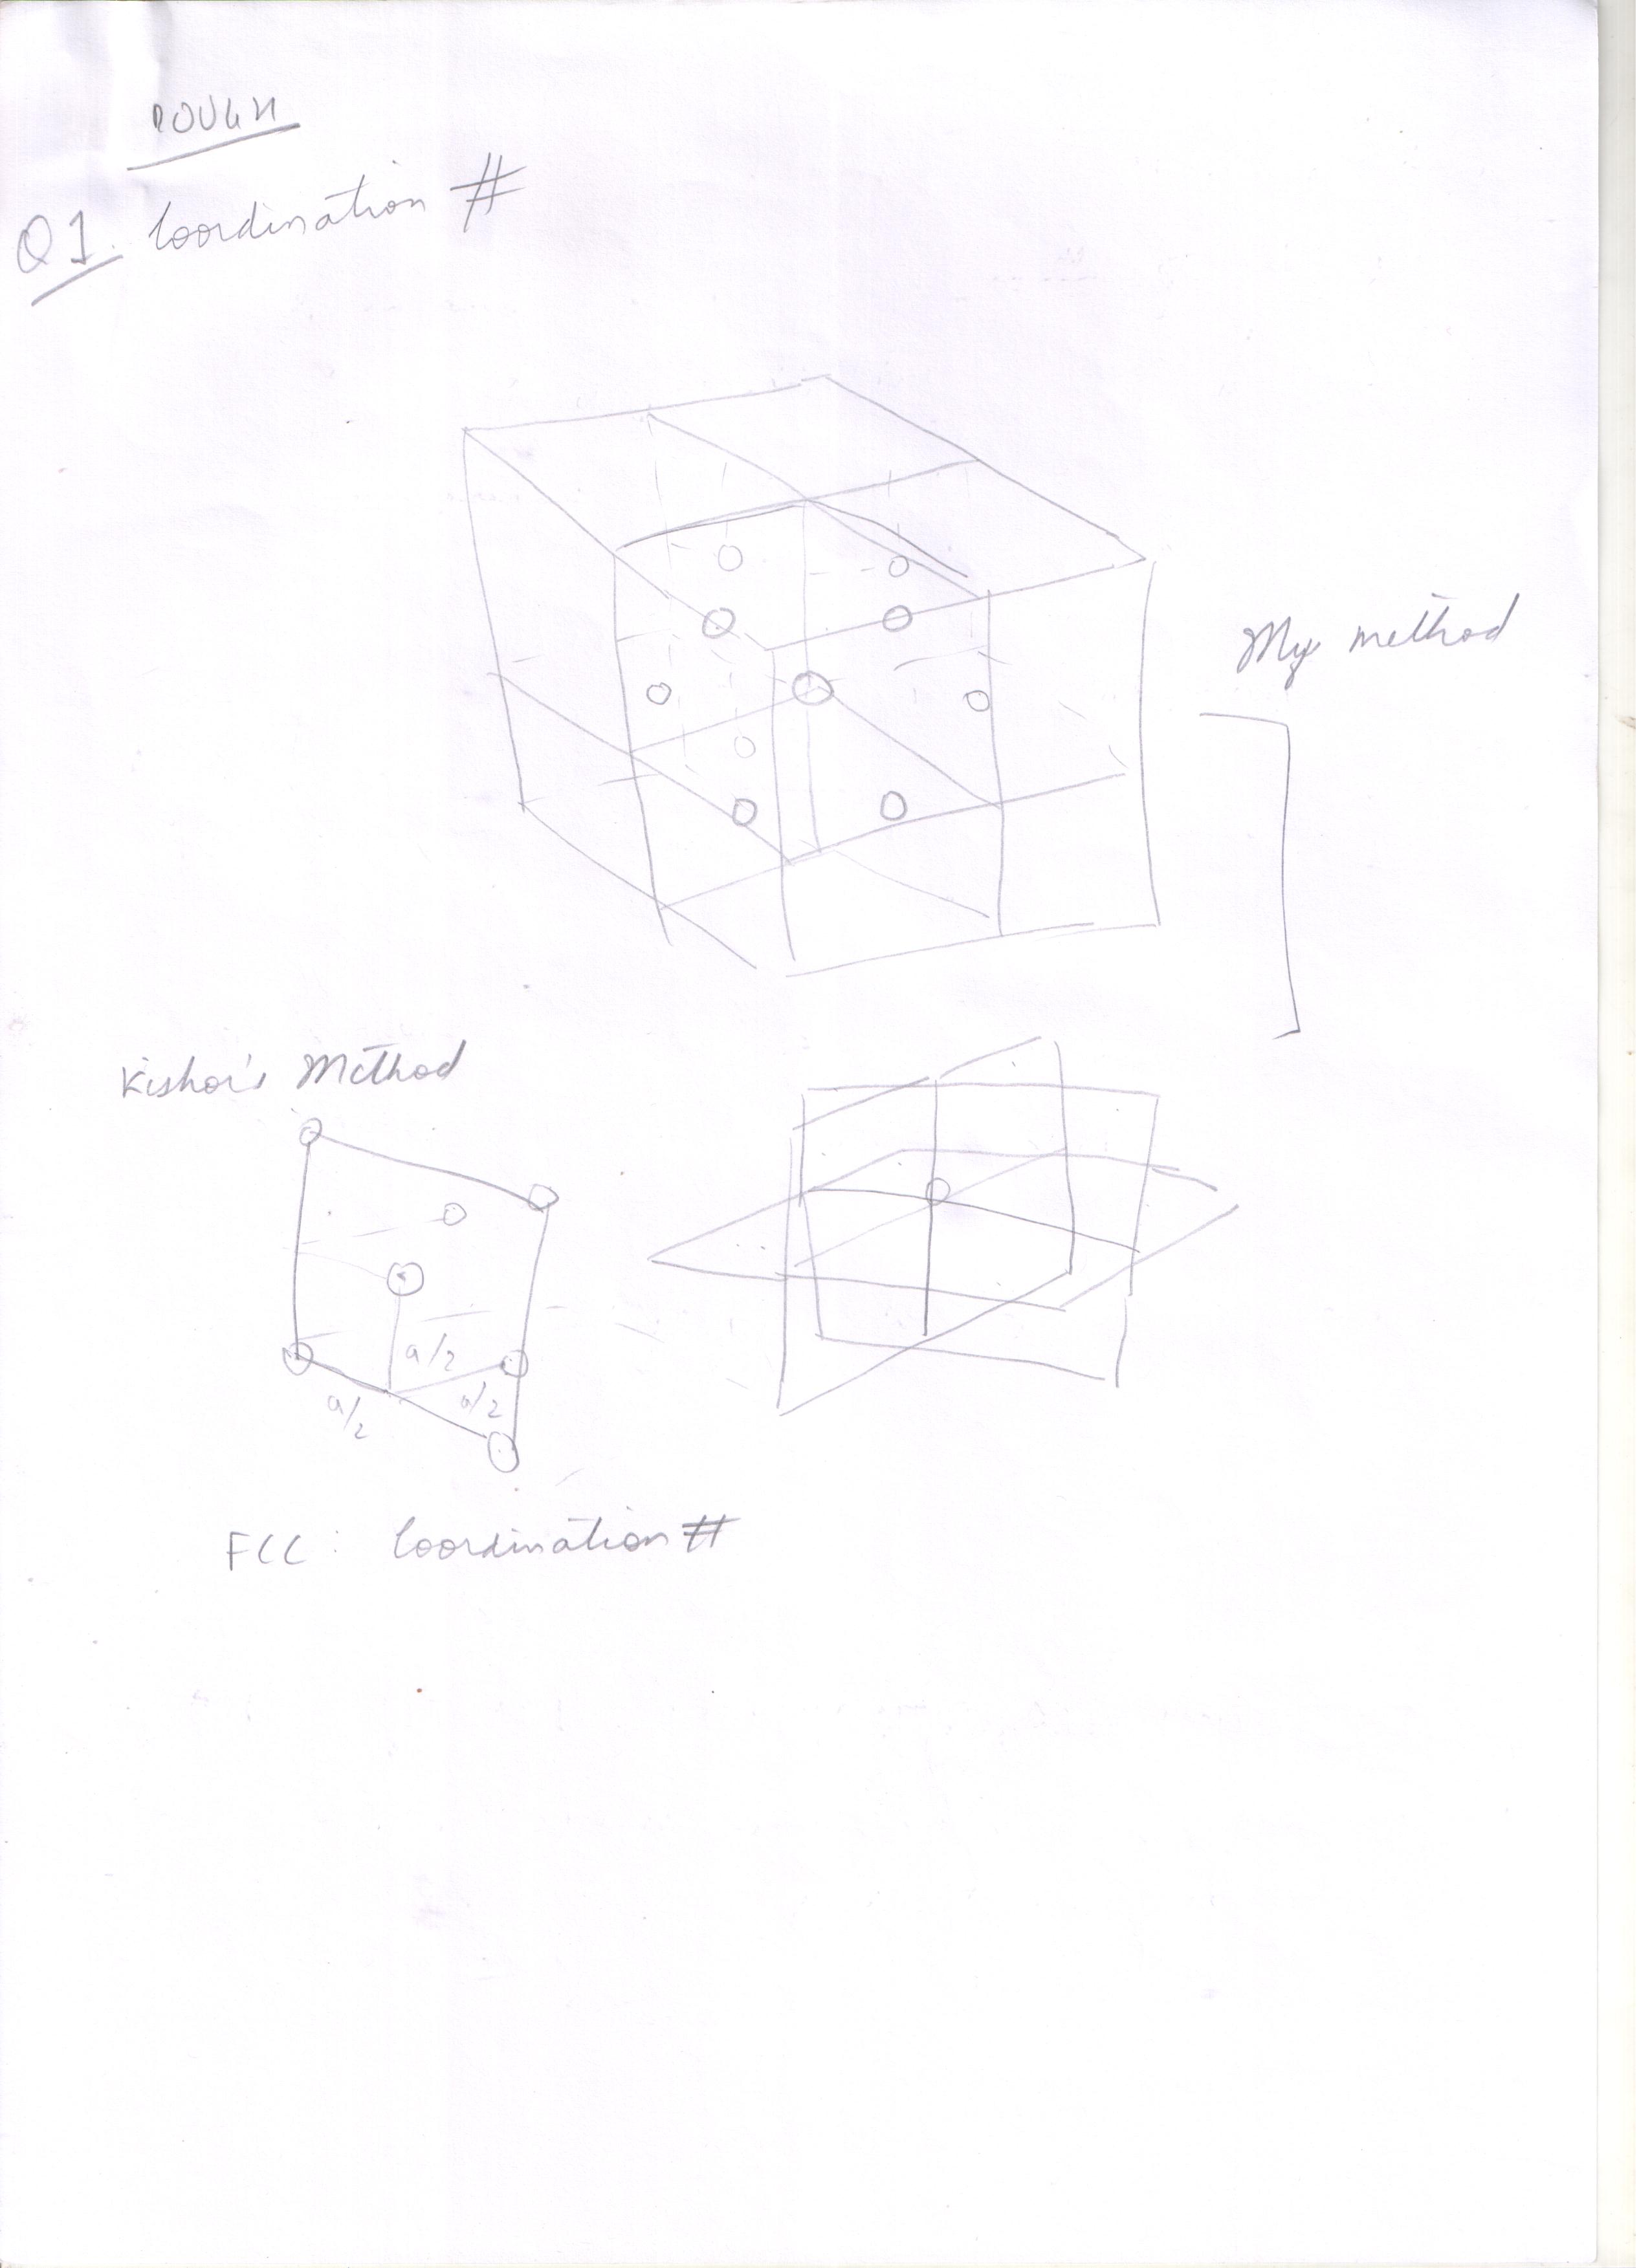 ROUGH
Q1. Coordination #
My method
Kishor's Method
a/2
a/2
a/2
FCC: Coordination #